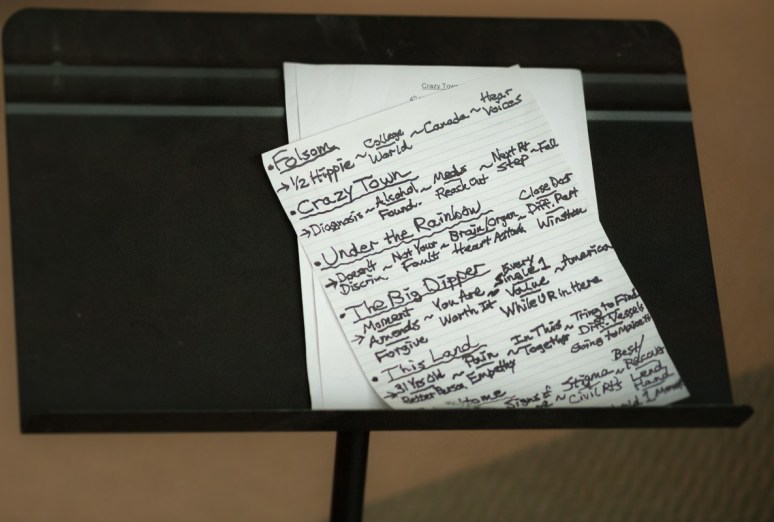 Crazy Town
• Folsom
→ 1/2 Hippie ~ College World ~ Canada ~ Hear Voices
• Crazy Town
→ Diagnosis ~ Alcohol ~ Meds ~ Next Rt ~ Fell
Found. Reach Out Step
• Under the Rainbow
→ Doesn't ~ Not Your ~ Brain/Organ ~ Diff. Part
Discrim Fault Heart Asthma Winston
• The Big Dipper
Moment ~ You Are Every Single 1 ~ America
→ Amends Worth It Value
Forgive While U R in Here
• This Land
→ 31 Yrs Old ~ Pain ~ In This Together ~ Trying to Find
Better Person Empathy Diff. Vessels
Going to Make It
Home
Signs of ~ Stigma ~ Best/
Civil Rts Lend Hand